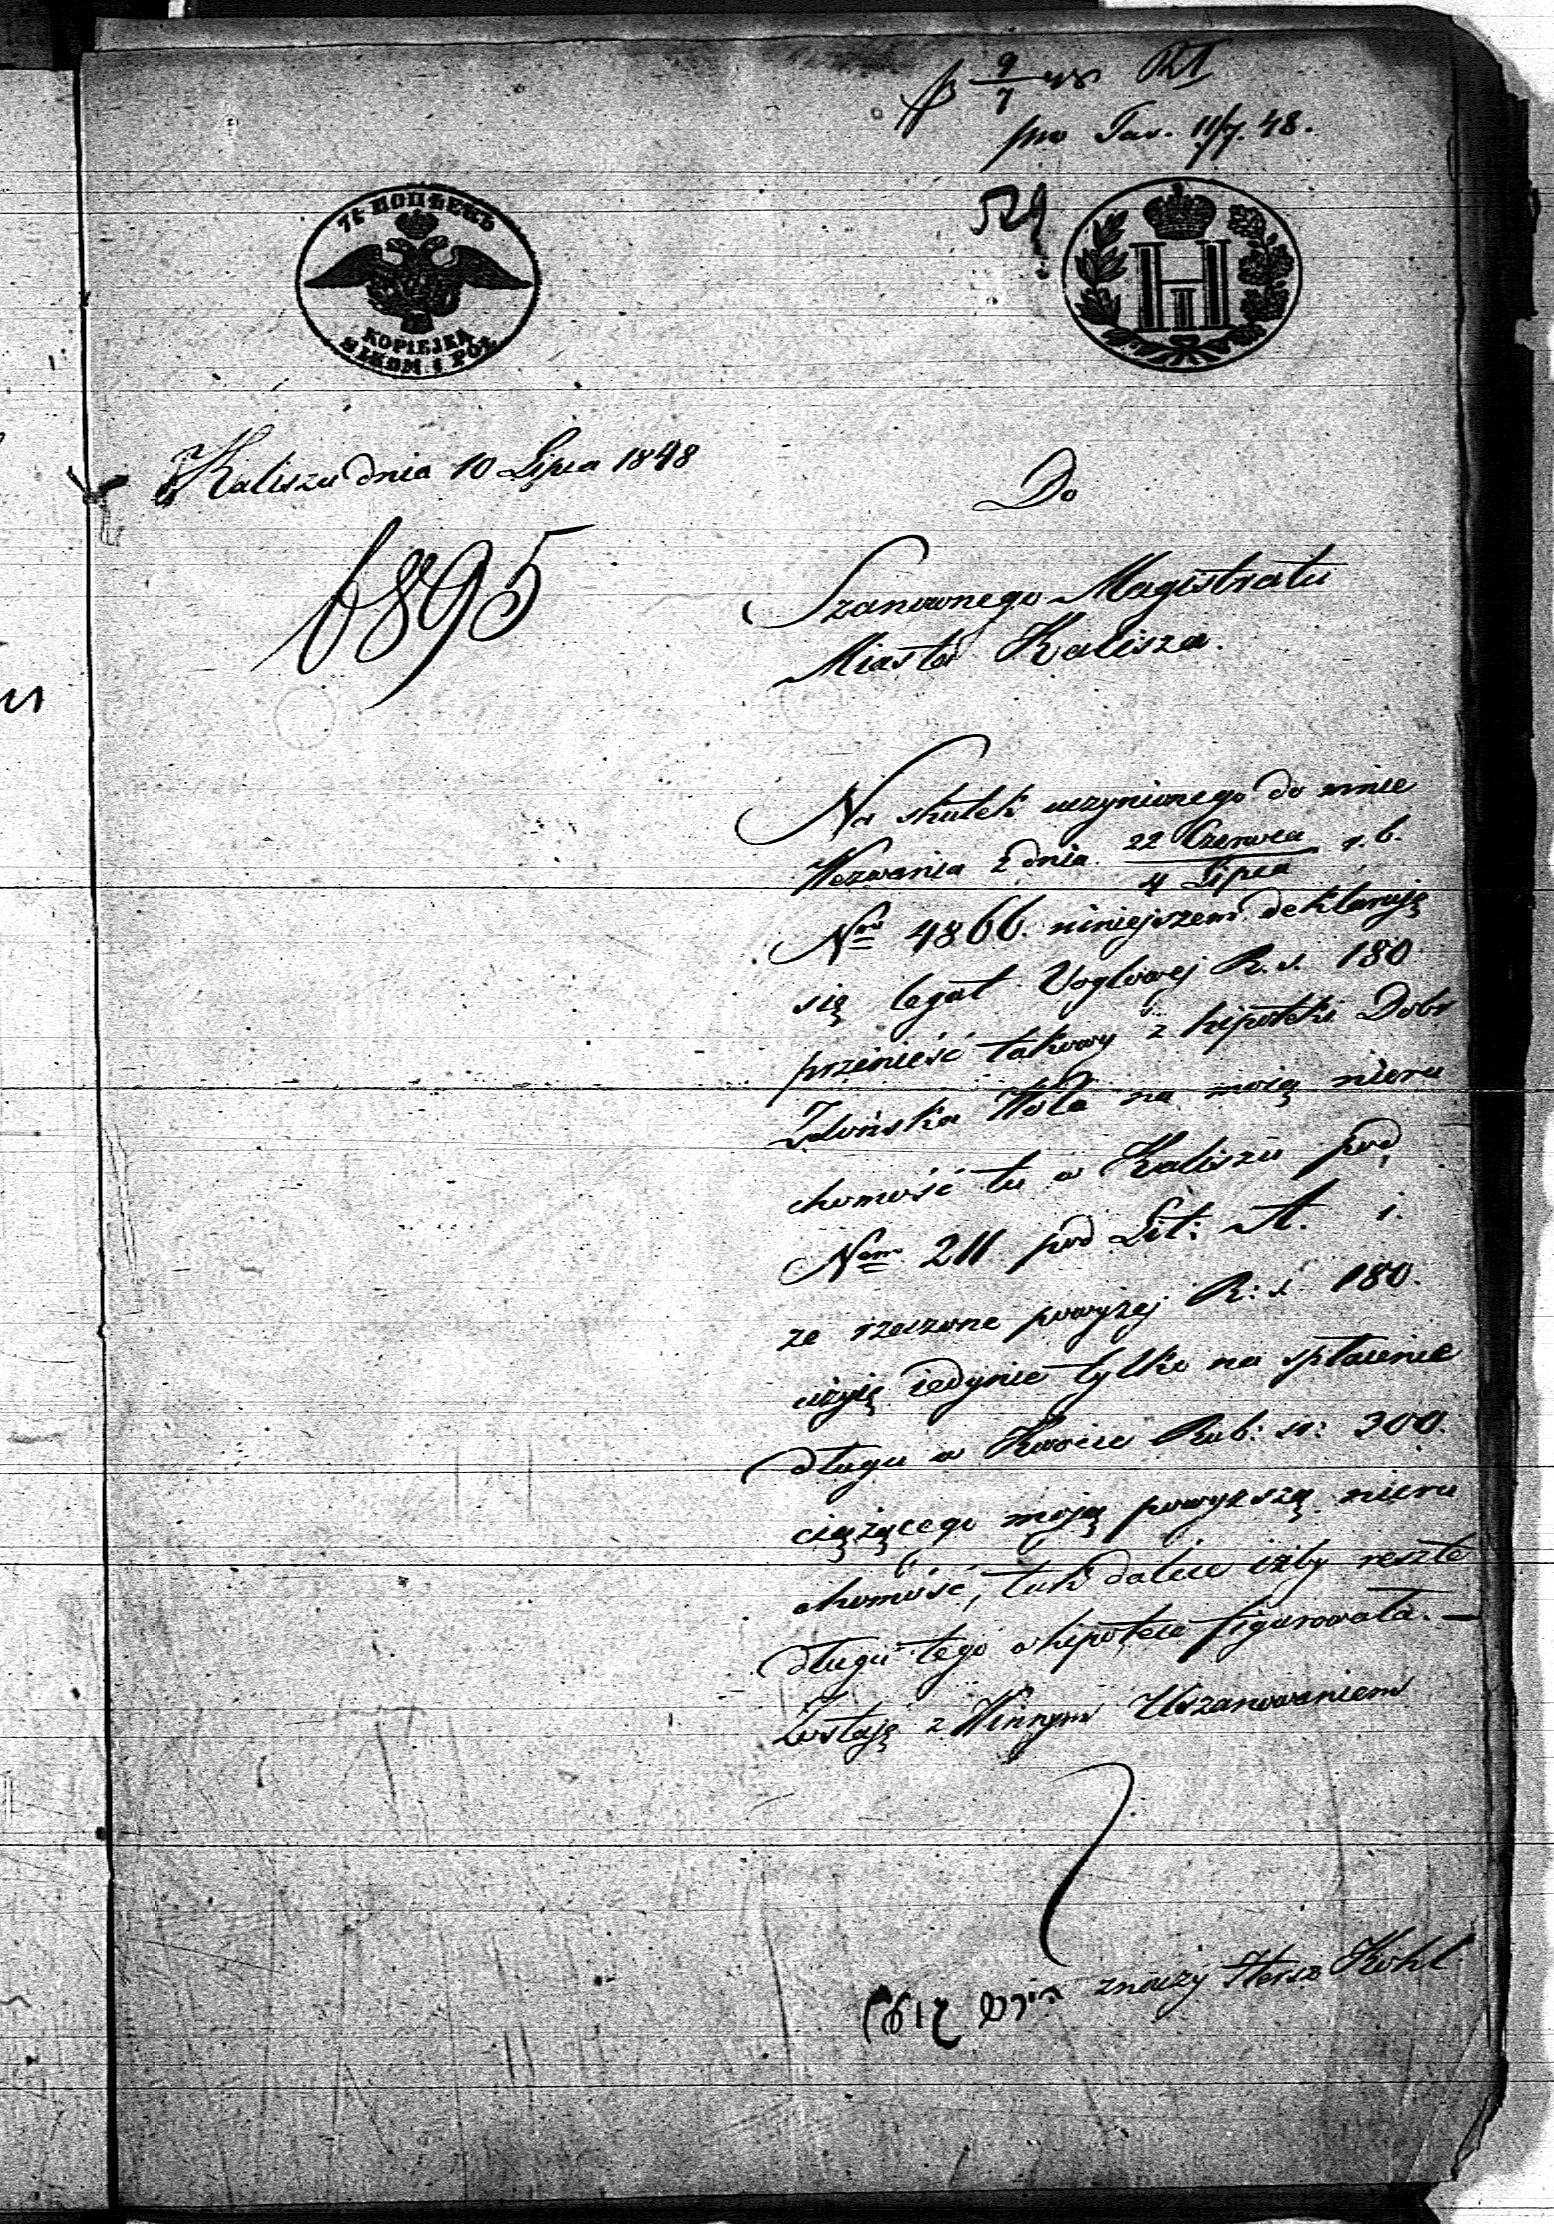 9/7 48
pro Tav. 11/7. 48.
529
7½ КОПѢЕКЪ
KOPIEJEK
SIEDM I PÓŁ
Kalisz dnia 10 Lipca 1848
Do
6895
Szanownego Magistratu
Miasta Kalisza.
Na skutek uczynionego do mnie
Wezwania z dnia 22 Czerwca / 4 Lipca r. b.
Nro 4866. niniejszem deklaruję
się legat Voglowej R. s. 180
przenieść takowy z hipoteki Dobr
Zduńska Wola na moią nieru
chomość tu w Kaliszu pod
Nem 211 pod Lit: A. i.
że rzeczone powyżej R: s. 180.
użyię iedynie tylko na spłacenie
długu w Kwocie Rub: sr: 300.
ciążącego moją powyższą nieru
chomość, tak dalece iżby reszta
długu tego w hipotece figurowała. —
Zostaję z Winnym Uszanowaniem
הירש קohl znaczy Hersz Kohl